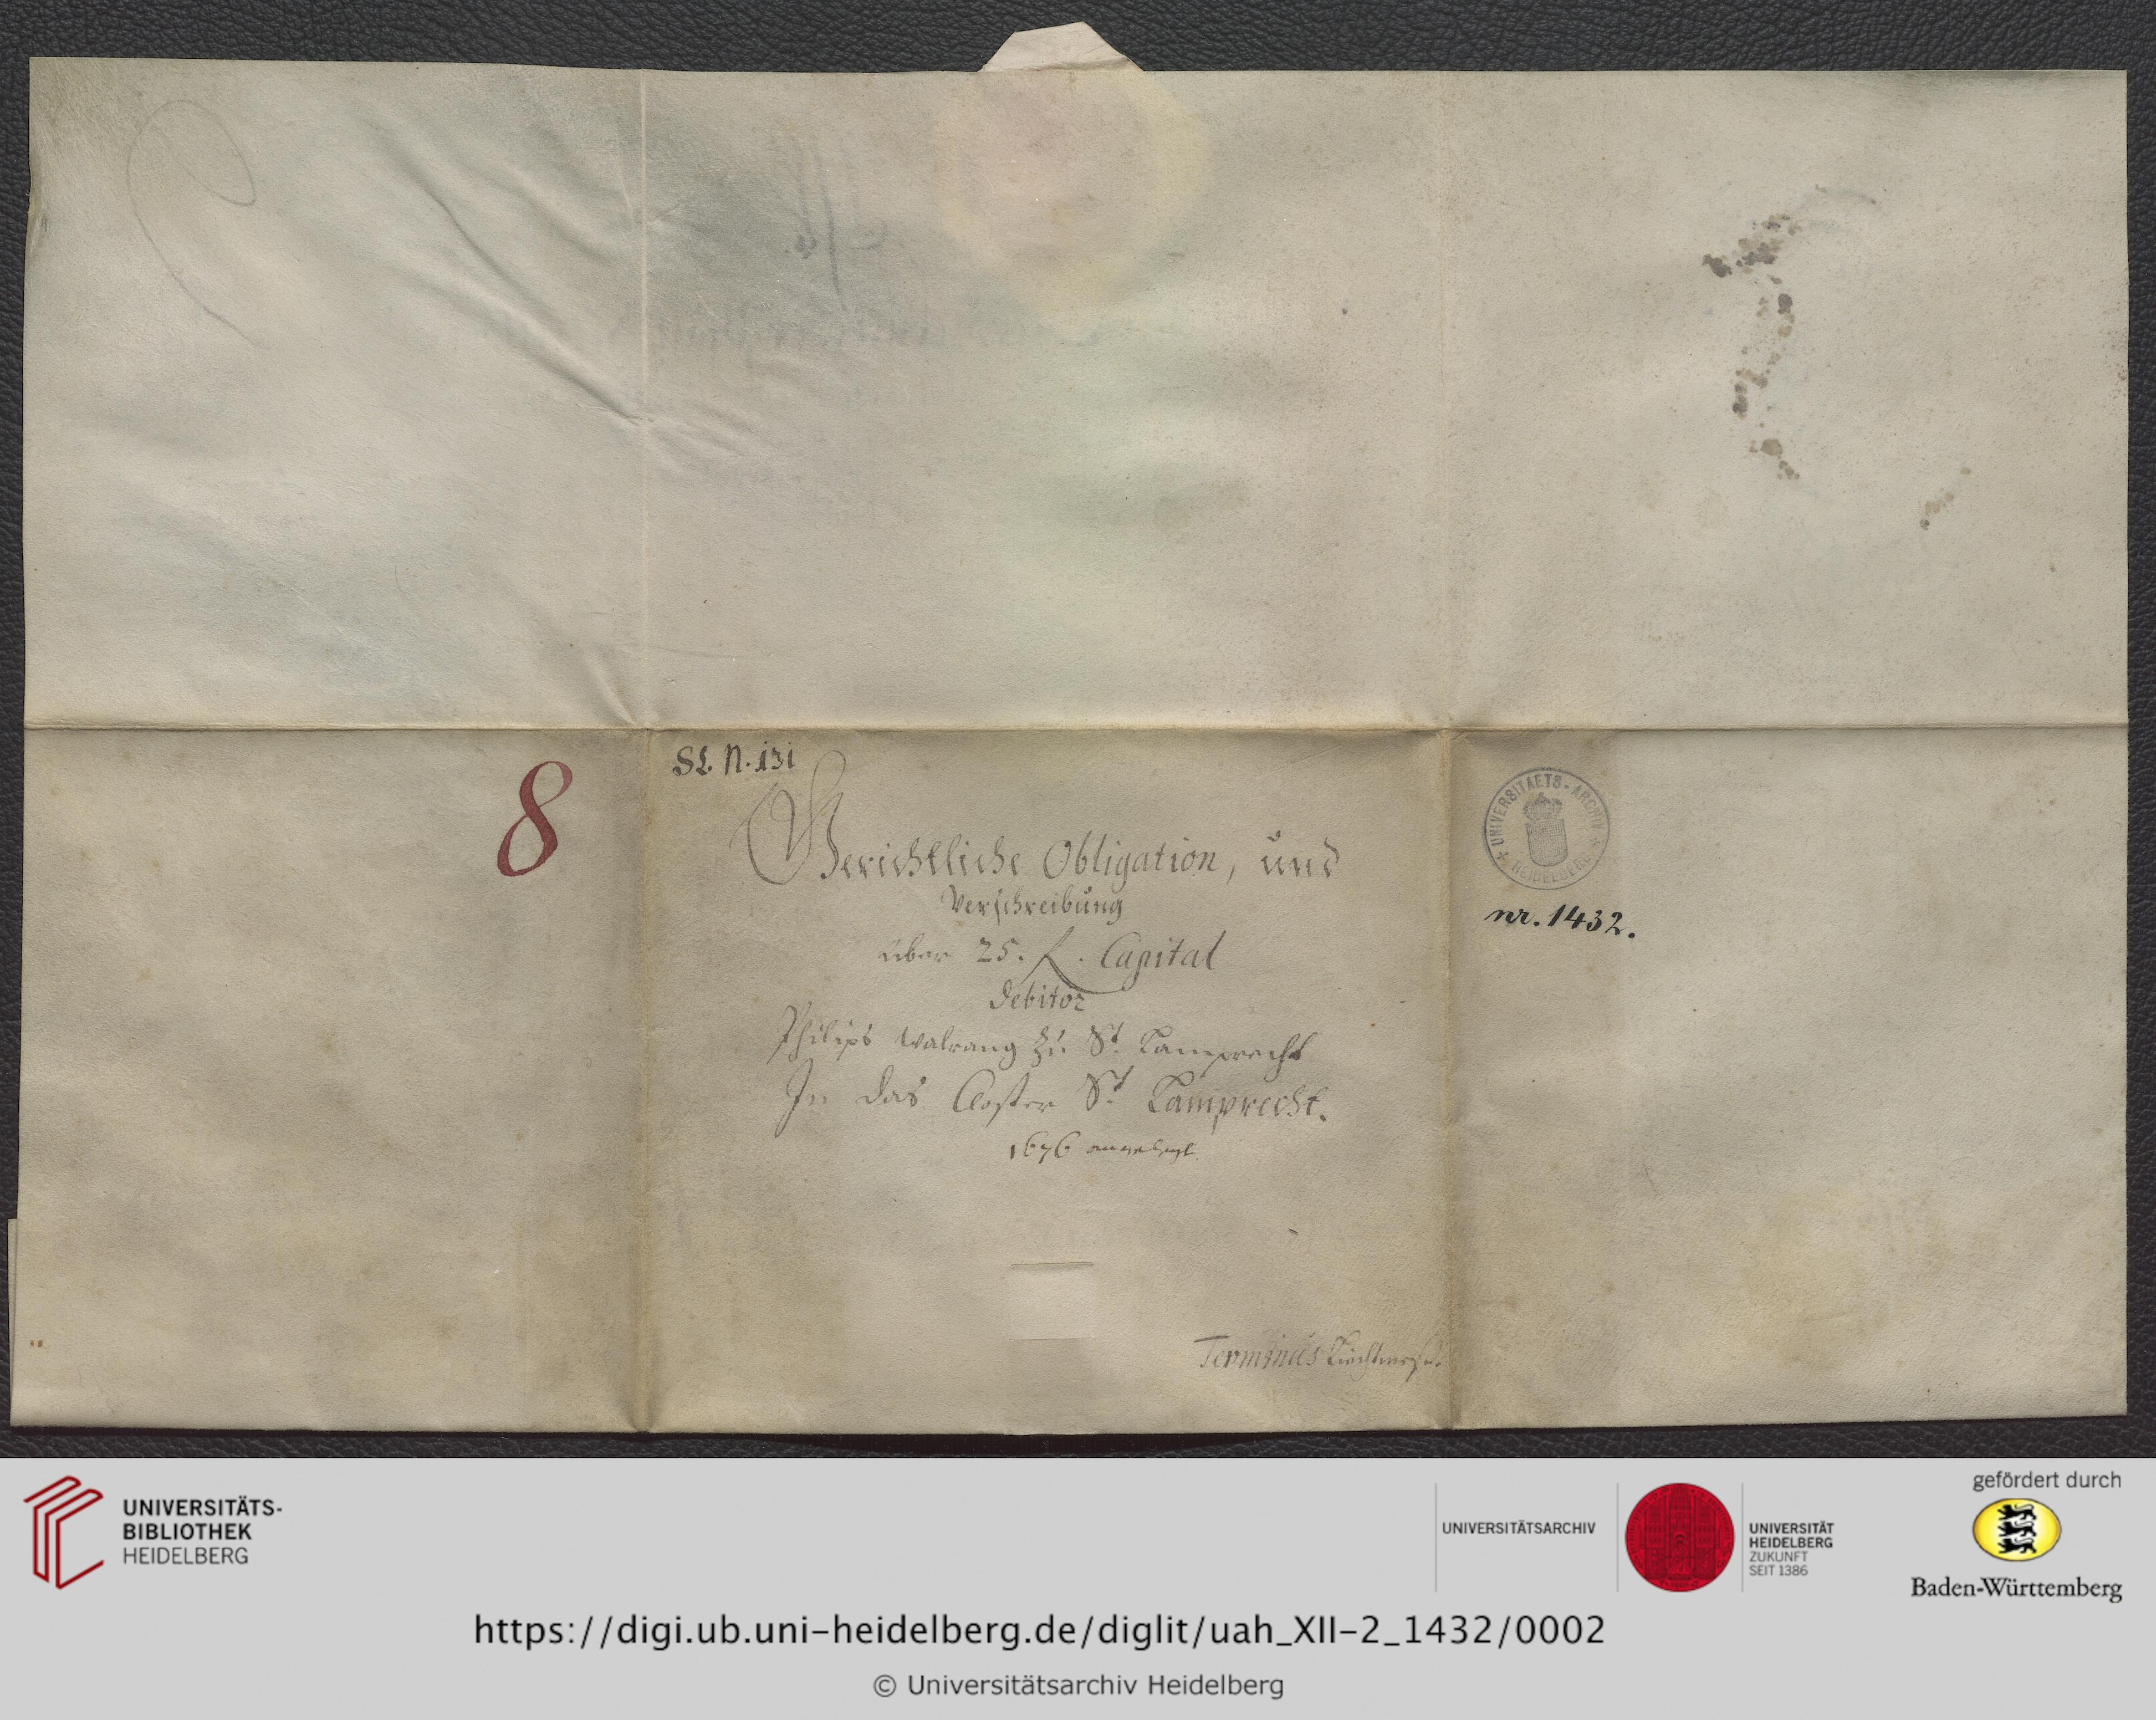 8
SL. N. 131
Gerichtliche Obligation, und
Verschreibung
über 25. fl. Capital
debitor
Philips Walrang zu St. Lamprecht
In das Closter St. Lamprecht.
1676 angelegt
Terminus Liechtmeß.
UNIVERSITAETS-ARCHIV
HEIDELBERG
nr. 1432.
UNIVERSITÄTS-
BIBLIOTHEK
HEIDELBERG
UNIVERSITÄTSARCHIV
UNIVERSITÄT
HEIDELBERG
ZUKUNFT
SEIT 1386
gefördert durch
Baden-Württemberg
https://digi.ub.uni-heidelberg.de/diglit/uah_XII-2_1432/0002
© Universitätsarchiv Heidelberg